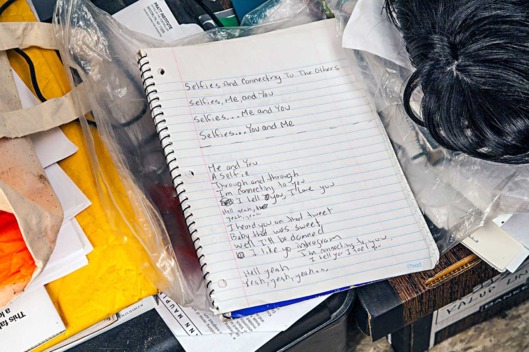 Selfies And Connecting To The Others
Selfies, Me and You
Selfies... Me and You
Selfies... You and Me
Me and You
A Selfie
Through and through
I'm connecting to you
I tell you, I love you
Hell yeah,
yeah, yeah
I heard you on that tweet
Baby that was sweet
Well I'll be damned
I like yo instagram
I'm connecting to you
I tell you I love you
Hell yeah
Yeah, yeah, yeah...
VALUE